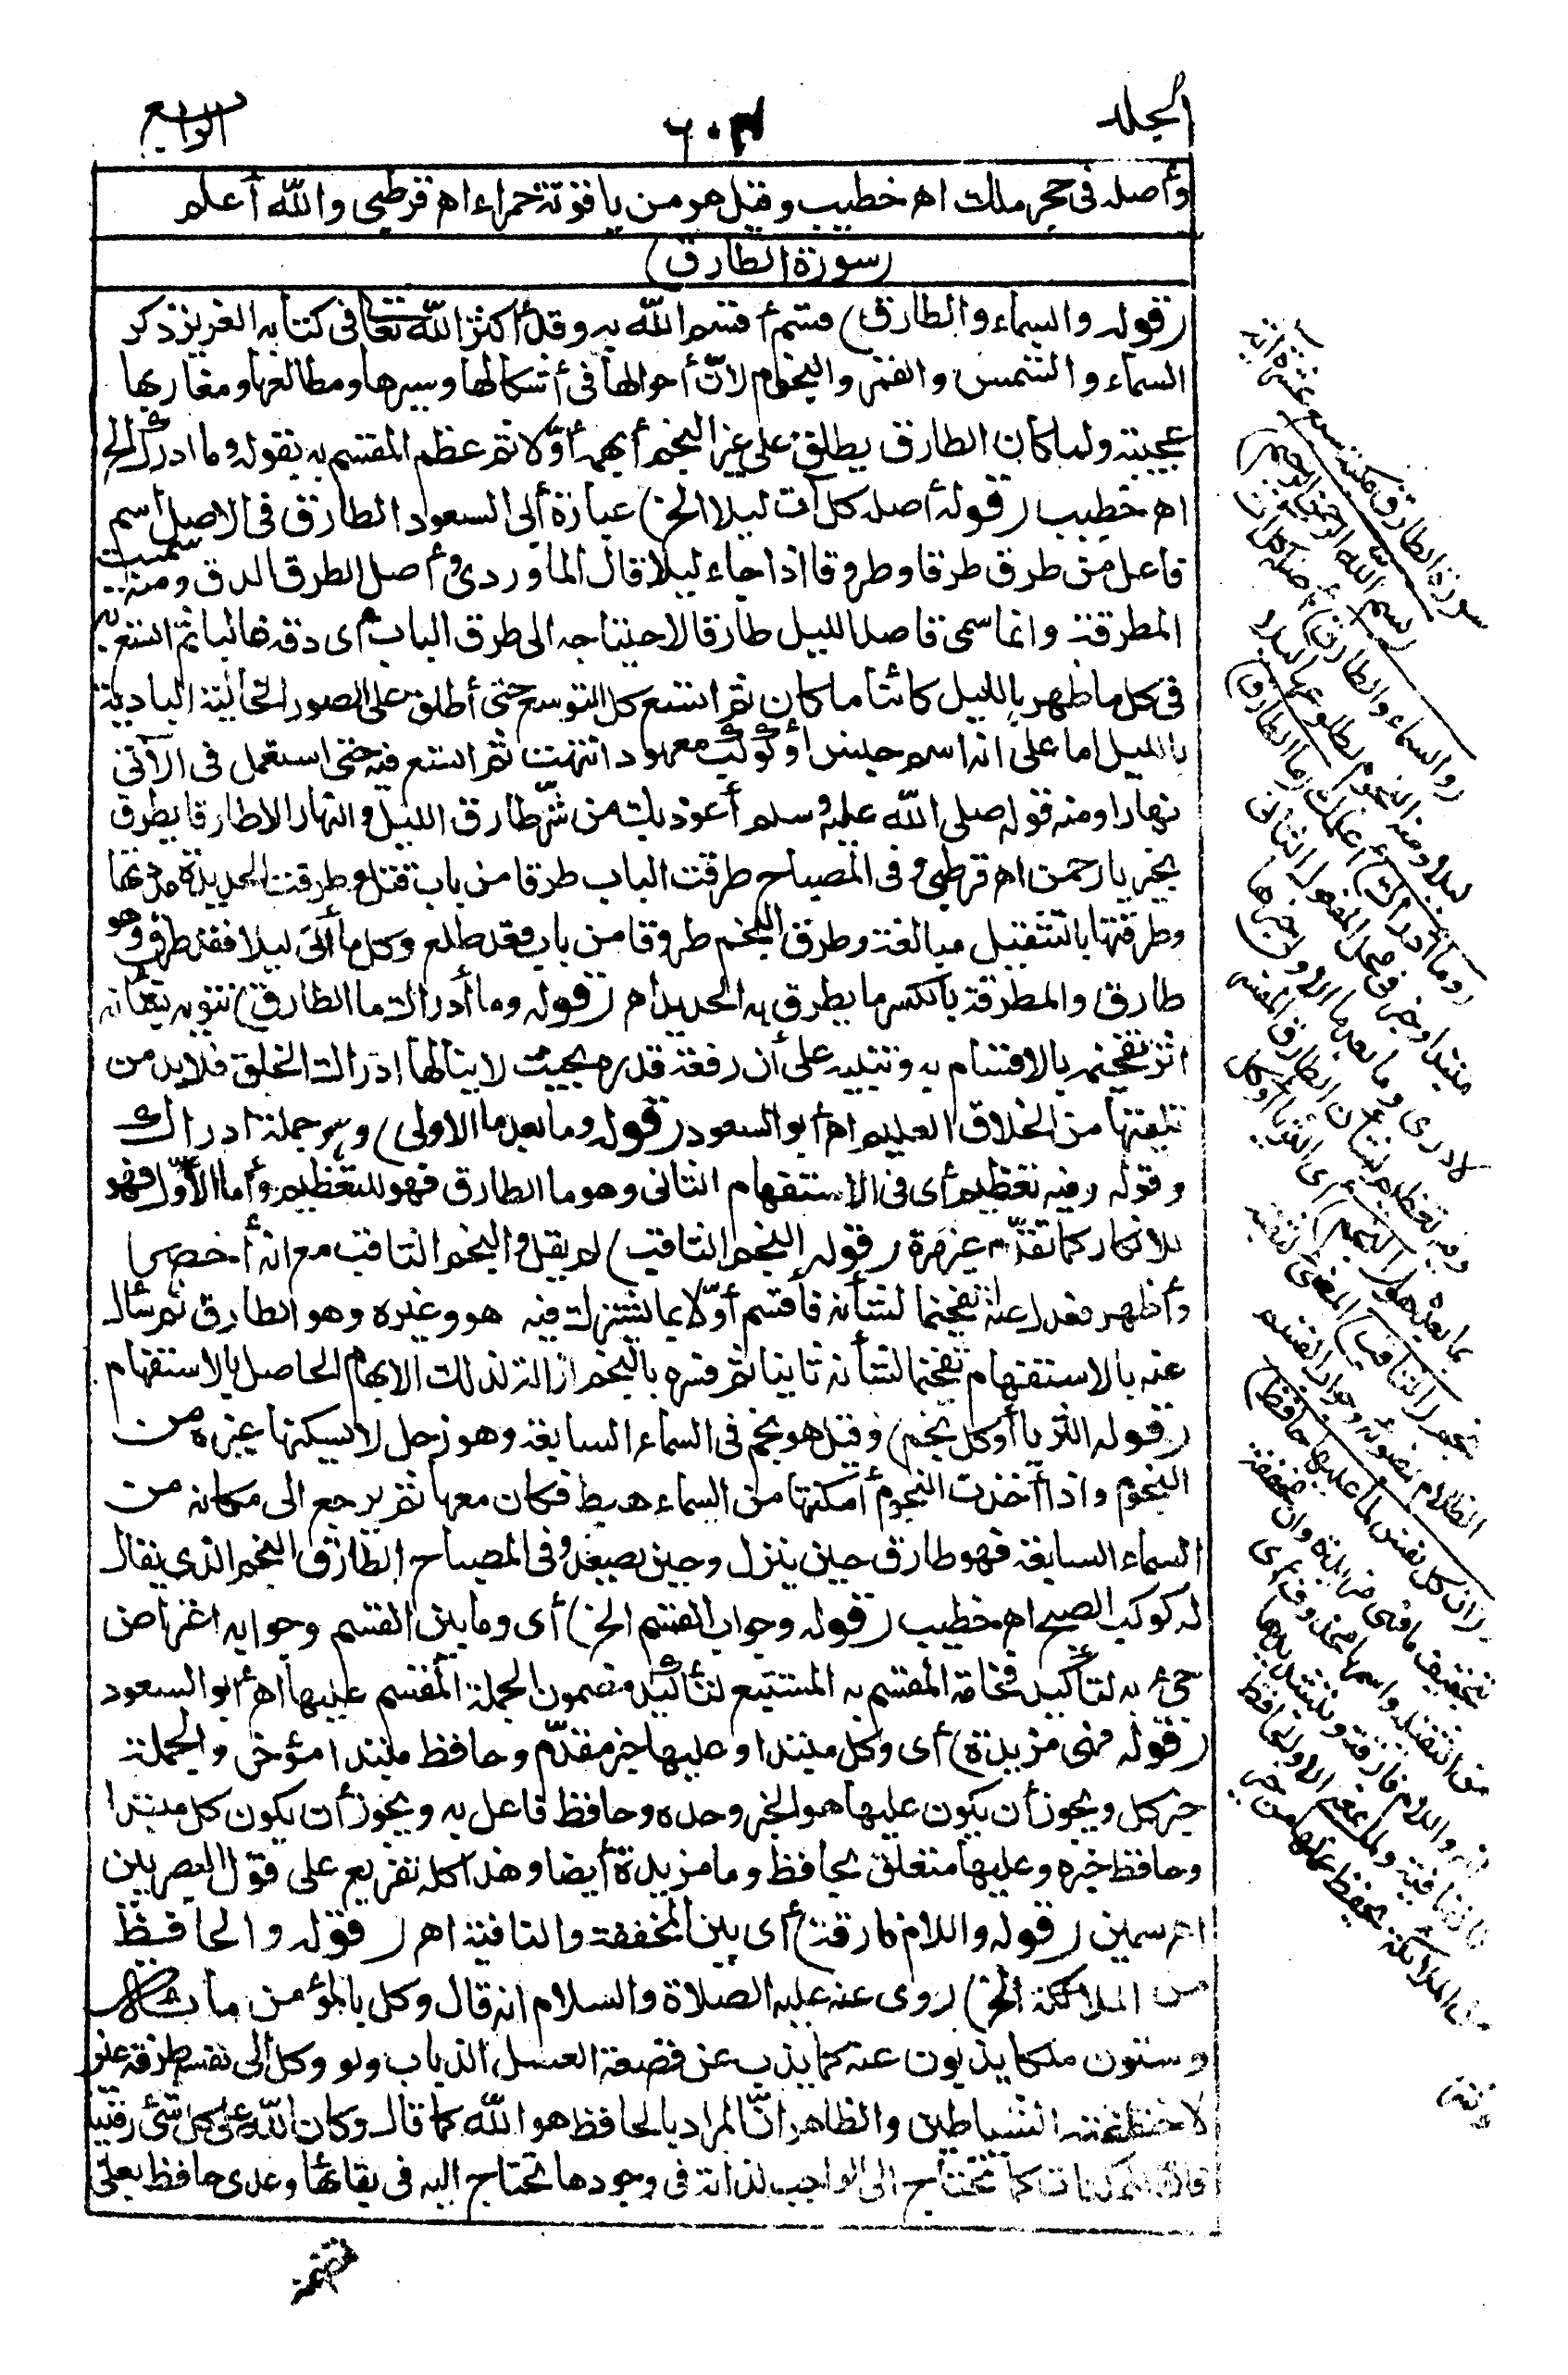 الجلد
٦٠٣
الرابع
وأصله فى حجر ملك اهـ خطيب وقيل هو من ياقوتة حمراء اهـ قرطبى والله أعلم
(سورة الطارق)
(قوله والسماء والطارق) قسم أقسم الله به وقد أكثر الله تعالى فى كتابه العزيز ذكر
السماء والشمس والقمر والنجوم لانّ أحوالها فى أشكالها وسيرها ومطالعها ومغاربها
عجيبة ولما كان الطارق يطلق على غير النجم أبهمه أوّلا ثم عظم المقسم به بقوله وما ادراك الخ
اهـ خطيب (قوله أصله كل آت ليلا الخ) عبارة أبى السعود الطارق فى الاصل اسم
فاعل من طرق طرقا وطروقا اذا جاء ليلا قال الماوردى وأصل الطرق الدق ومنه سميت
المطرقة وانما سمى قاصد الليل طارقا لاحتياجه الى طرق الباب أى دقه غالبا ثم اتسع به
فى كل ما ظهر بالليل كائنا ما كان ثم اتسع كل التوسع حتى أطلق على الصور الخيالية البادية
بالليل اما على انه اسم جنس أو كوكب معهود انتهت ثم اتسع فيه حتى استعمل فى الآتى
نهارا ومنه قوله صلى الله عليه وسلم أعوذ بك من شرّ طارق الليل والنهار الا طارقا يطرق
بخير يا رحمن اهـ قرطبى وفى المصباح طرقت الباب طرقا من باب قتل وطرقت الحديدة مددتها
وطرقتها بالتثقيل مبالغة وطرق النجم طروقا من باب قعد طلع وكل ما أتى ليلا فقد طرق وهو
طارق والمطرقة بالكسر ما يطرق به الحديد اهـ (قوله وما أدراك ما الطارق) تنويه بشأنه
اثر تفخيمه بالاقسام به وتنبيه على أن رفعة قدره بحيث لا ينالها ادراك الخلق فلا بد من
تلقيها من الخلاق العليم اهـ أبو السعود (قوله وما بعد ما الاولى) وهو جملة أدراك
وقوله وفيه تعظيم أى فى الاستفهام الثانى وهو ما الطارق فهو للتعظيم وأما الأوّل فهو
للانكار كما تقدّم غير مرة (قوله النجم الثاقب) لم يقل والنجم الثاقب مع انه أخصر
وأظهر فعدل عنه تفخيما لشأنه فأقسم أوّلا بما يشترك فيه هو وغيره وهو الطارق ثم سأل
عنه بالاستفهام تفخيما لشأنه ثانيا ثم فسره بالنجم ازالة لذلك الابهام الحاصل بالاستفهام
(قوله الثريا أو كل نجم) وقيل هو نجم فى السماء السابعة وهو زحل لا يسكنها غيره من
النجوم واذا أخذت النجوم أمكنتها من السماء هبط فكان معها ثم يرجع الى مكانه من
السماء السابعة فهو طارق حين ينزل وحين يصعد وفى المصباح الطارق النجم الذى يقال
له كوكب الصبح اهـ خطيب (قوله وجواب القسم الخ) أى وما بين القسم وجوابه اعتراض
جىء به لتأكيد فخامة المقسم به المستتبع لتأكيد مضمون الجملة المقسم عليها اهـ أبو السعود
(قوله فهى مزيدة) أى وكل مبتدا وعليها خبر مقدّم وحافظ مبتدا مؤخر والجملة
خبر كل ويجوز أن يكون عليها هو الخبر وحده وحافظ فاعل به ويجوز أن يكون كل مبتدا
وحافظ خبره وعليها متعلق بحافظ وما مزيدة أيضا وهذا كله تفريع على قول البصريين
اهـ سمين (قوله واللام فارقة) أى بين المخففة والنافية اهـ (قوله والحافظ
من الملائكة الخ) روى عنه عليه الصلاة والسلام انه قال وكل بالمؤمن مائة
وستون ملكا يذبون عنه كما يذب عن قصعة العسل الذباب ولو وكل الى نفسه طرفة عين
لاختطفته الشياطين والظاهر انّ المراد بالحافظ هو الله كما قال وكان الله على كل شىء رقيبا
فانّ الممكنات كما تحتاج الى الواجب لذاته فى وجودها تحتاج اليه فى بقائها وعدى حافظ بعلى
سورة الطارق مكية سبع عشرة آية
(بسم الله الرحمن الرحيم)
(والسماء والطارق) أصله كل آت
ليلا ومنه النجوم لطلوعها ليلا
(وما أدراك) أعلمك (ما الطارق)
مبتدا وخبر فى محل المفعول الثانى
لادرى وما بعد ما الاولى خبرها
وفيه تعظيم لشأن الطارق المفسر
بما بعده هو (النجم) أى الثريا أو كل
نجم (الثاقب) المضىء لثقبه
الظلام بضوئه وجواب القسم
(ان كل نفس لما عليها حافظ)
بتخفيف ما فهى مزيدة وان مخففة
من الثقيلة واسمها محذوف أى
انه واللام فارقة وبتشديدها
فان نافية ولما بمعنى الا والحافظ
من الملائكة يحفظ عملها من خير
وشر